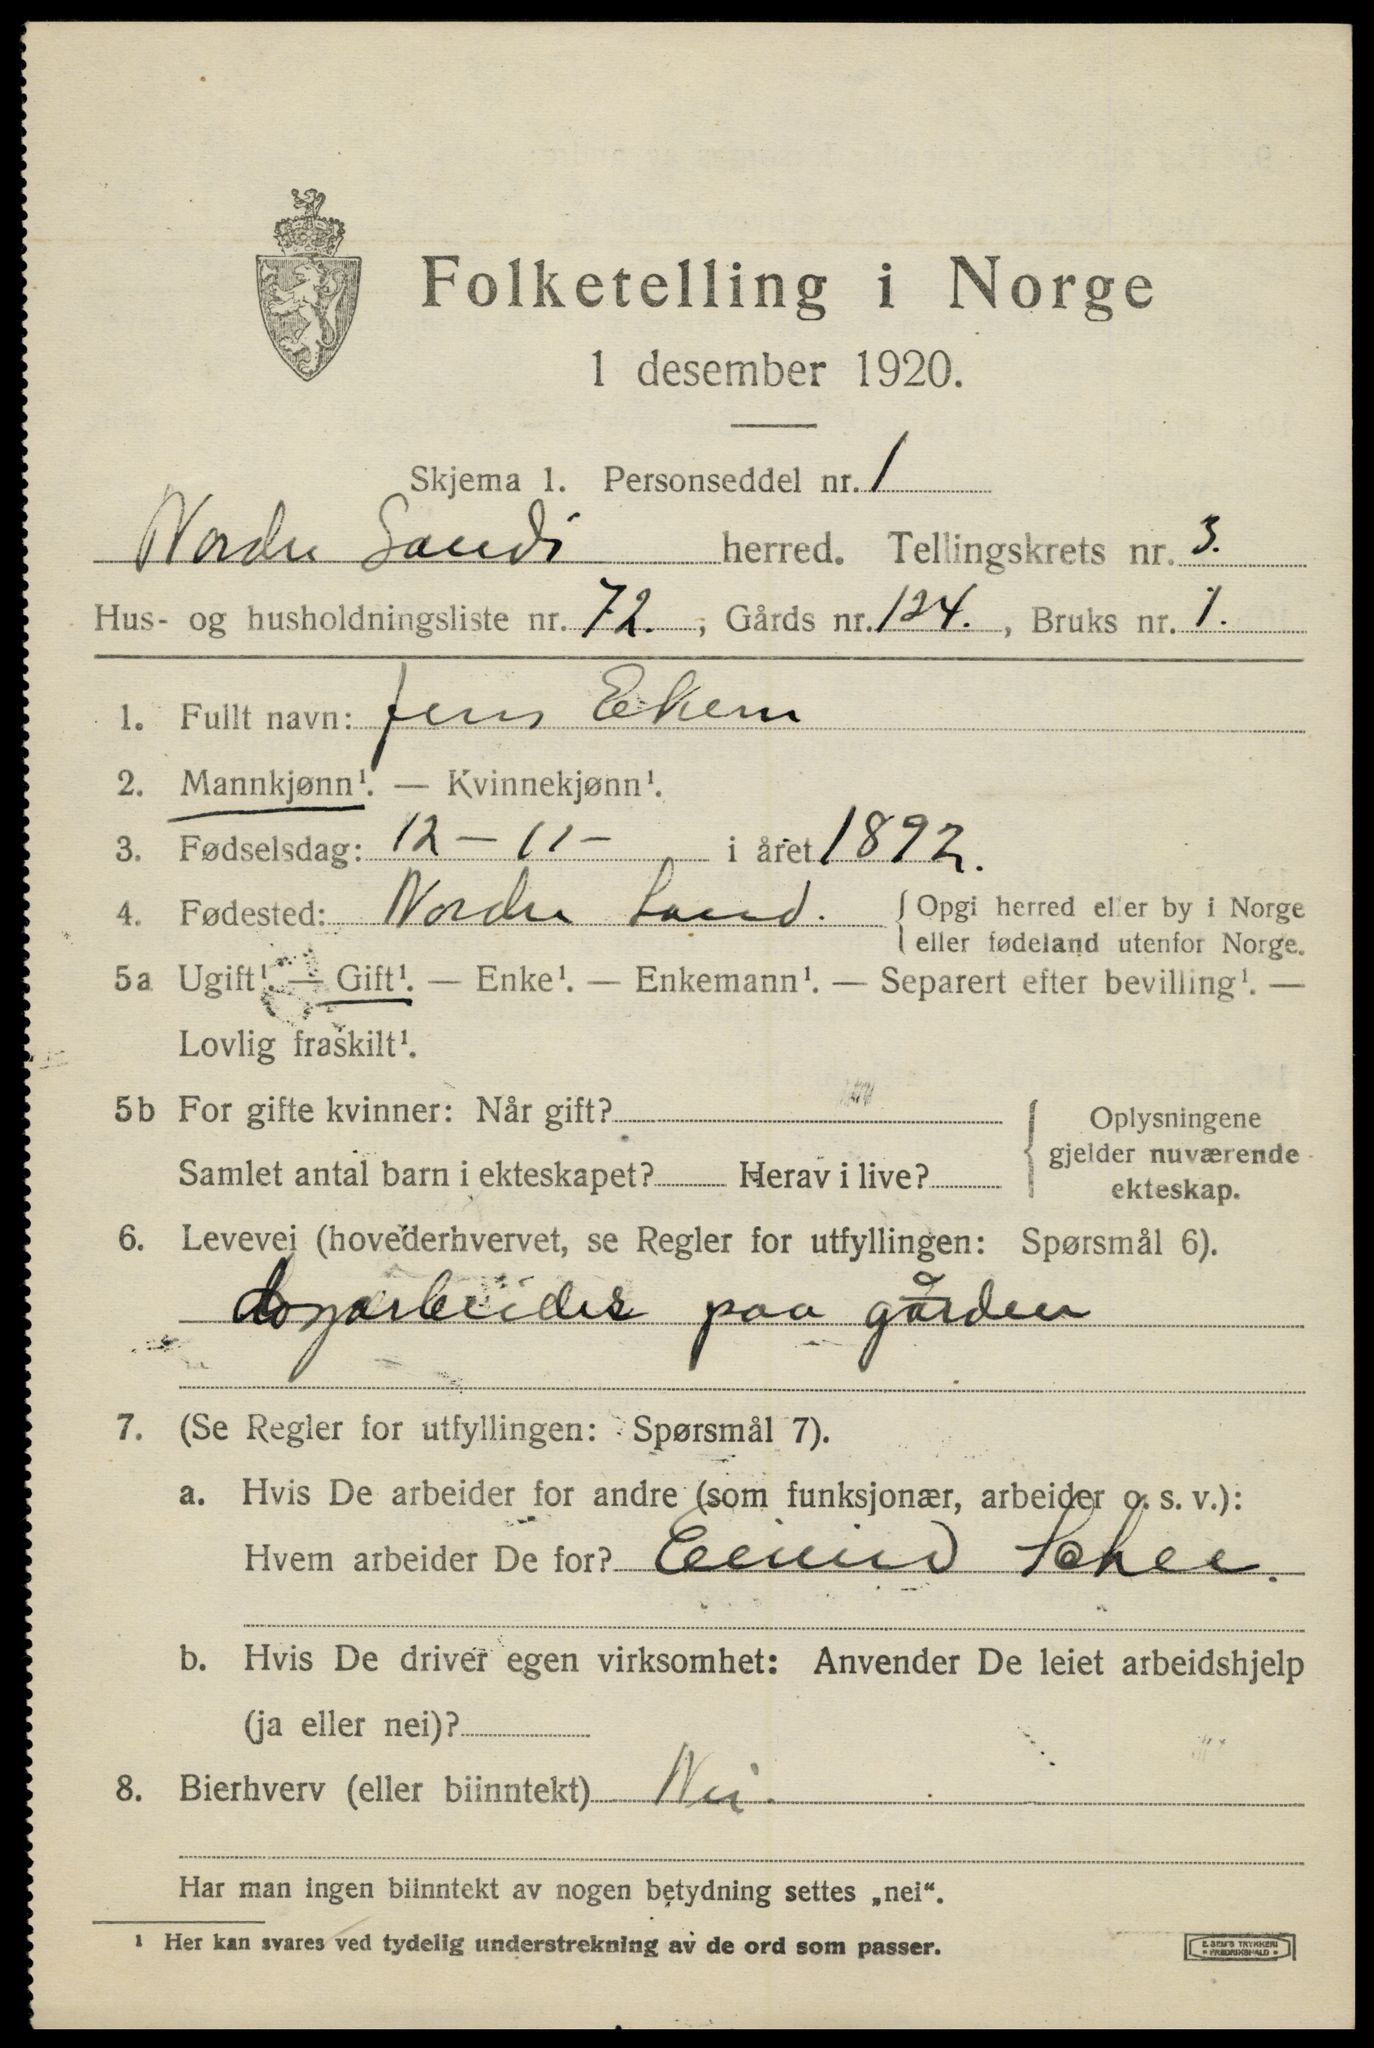 Folketelling i Norge
1 desember 1920.
Skjema 1. Personseddel nr. 1
Nordre Land herred. Tellingskrets nr. 3.
Hus- og husholdningsliste nr. 72., Gårds nr. 124., Bruks nr. 1.
1. Fullt navn: Jens Ekern
2. Mannkjønn¹. — Kvinnekjønn¹.
3. Fødselsdag: 12 – 11 – i året 1892.
4. Fødested: Nordre Land. {Opgi herred eller by i Norge
eller fødeland utenfor Norge.
5a Ugift¹. — Gift¹. — Enke¹. — Enkemann¹. — Separert efter bevilling¹. —
Lovlig fraskilt¹.
5b For gifte kvinner: Når gift? { Oplysningene
gjelder nuværende
ekteskap.
Samlet antal barn i ekteskapet? Herav i live?
6. Levevei (hovederhvervet, se Regler for utfyllingen: Spørsmål 6).
paa gården
7. (Se Regler for utfyllingen: Spørsmål 7).
a. Hvis De arbeider for andre (som funksjonær, arbeider o. s. v.):
Hvem arbeider De for?
b. Hvis De driver egen virksomhet: Anvender De leiet arbeidshjelp
(ja eller nei)?
8. Bierhverv (eller biinntekt) Nei.
Har man ingen biinntekt av nogen betydning settes „nei“.
¹ Her kan svares ved tydelig understrekning av de ord som passer.
E. SEM'S TRYKKERI
* FREDRIKSHALD *